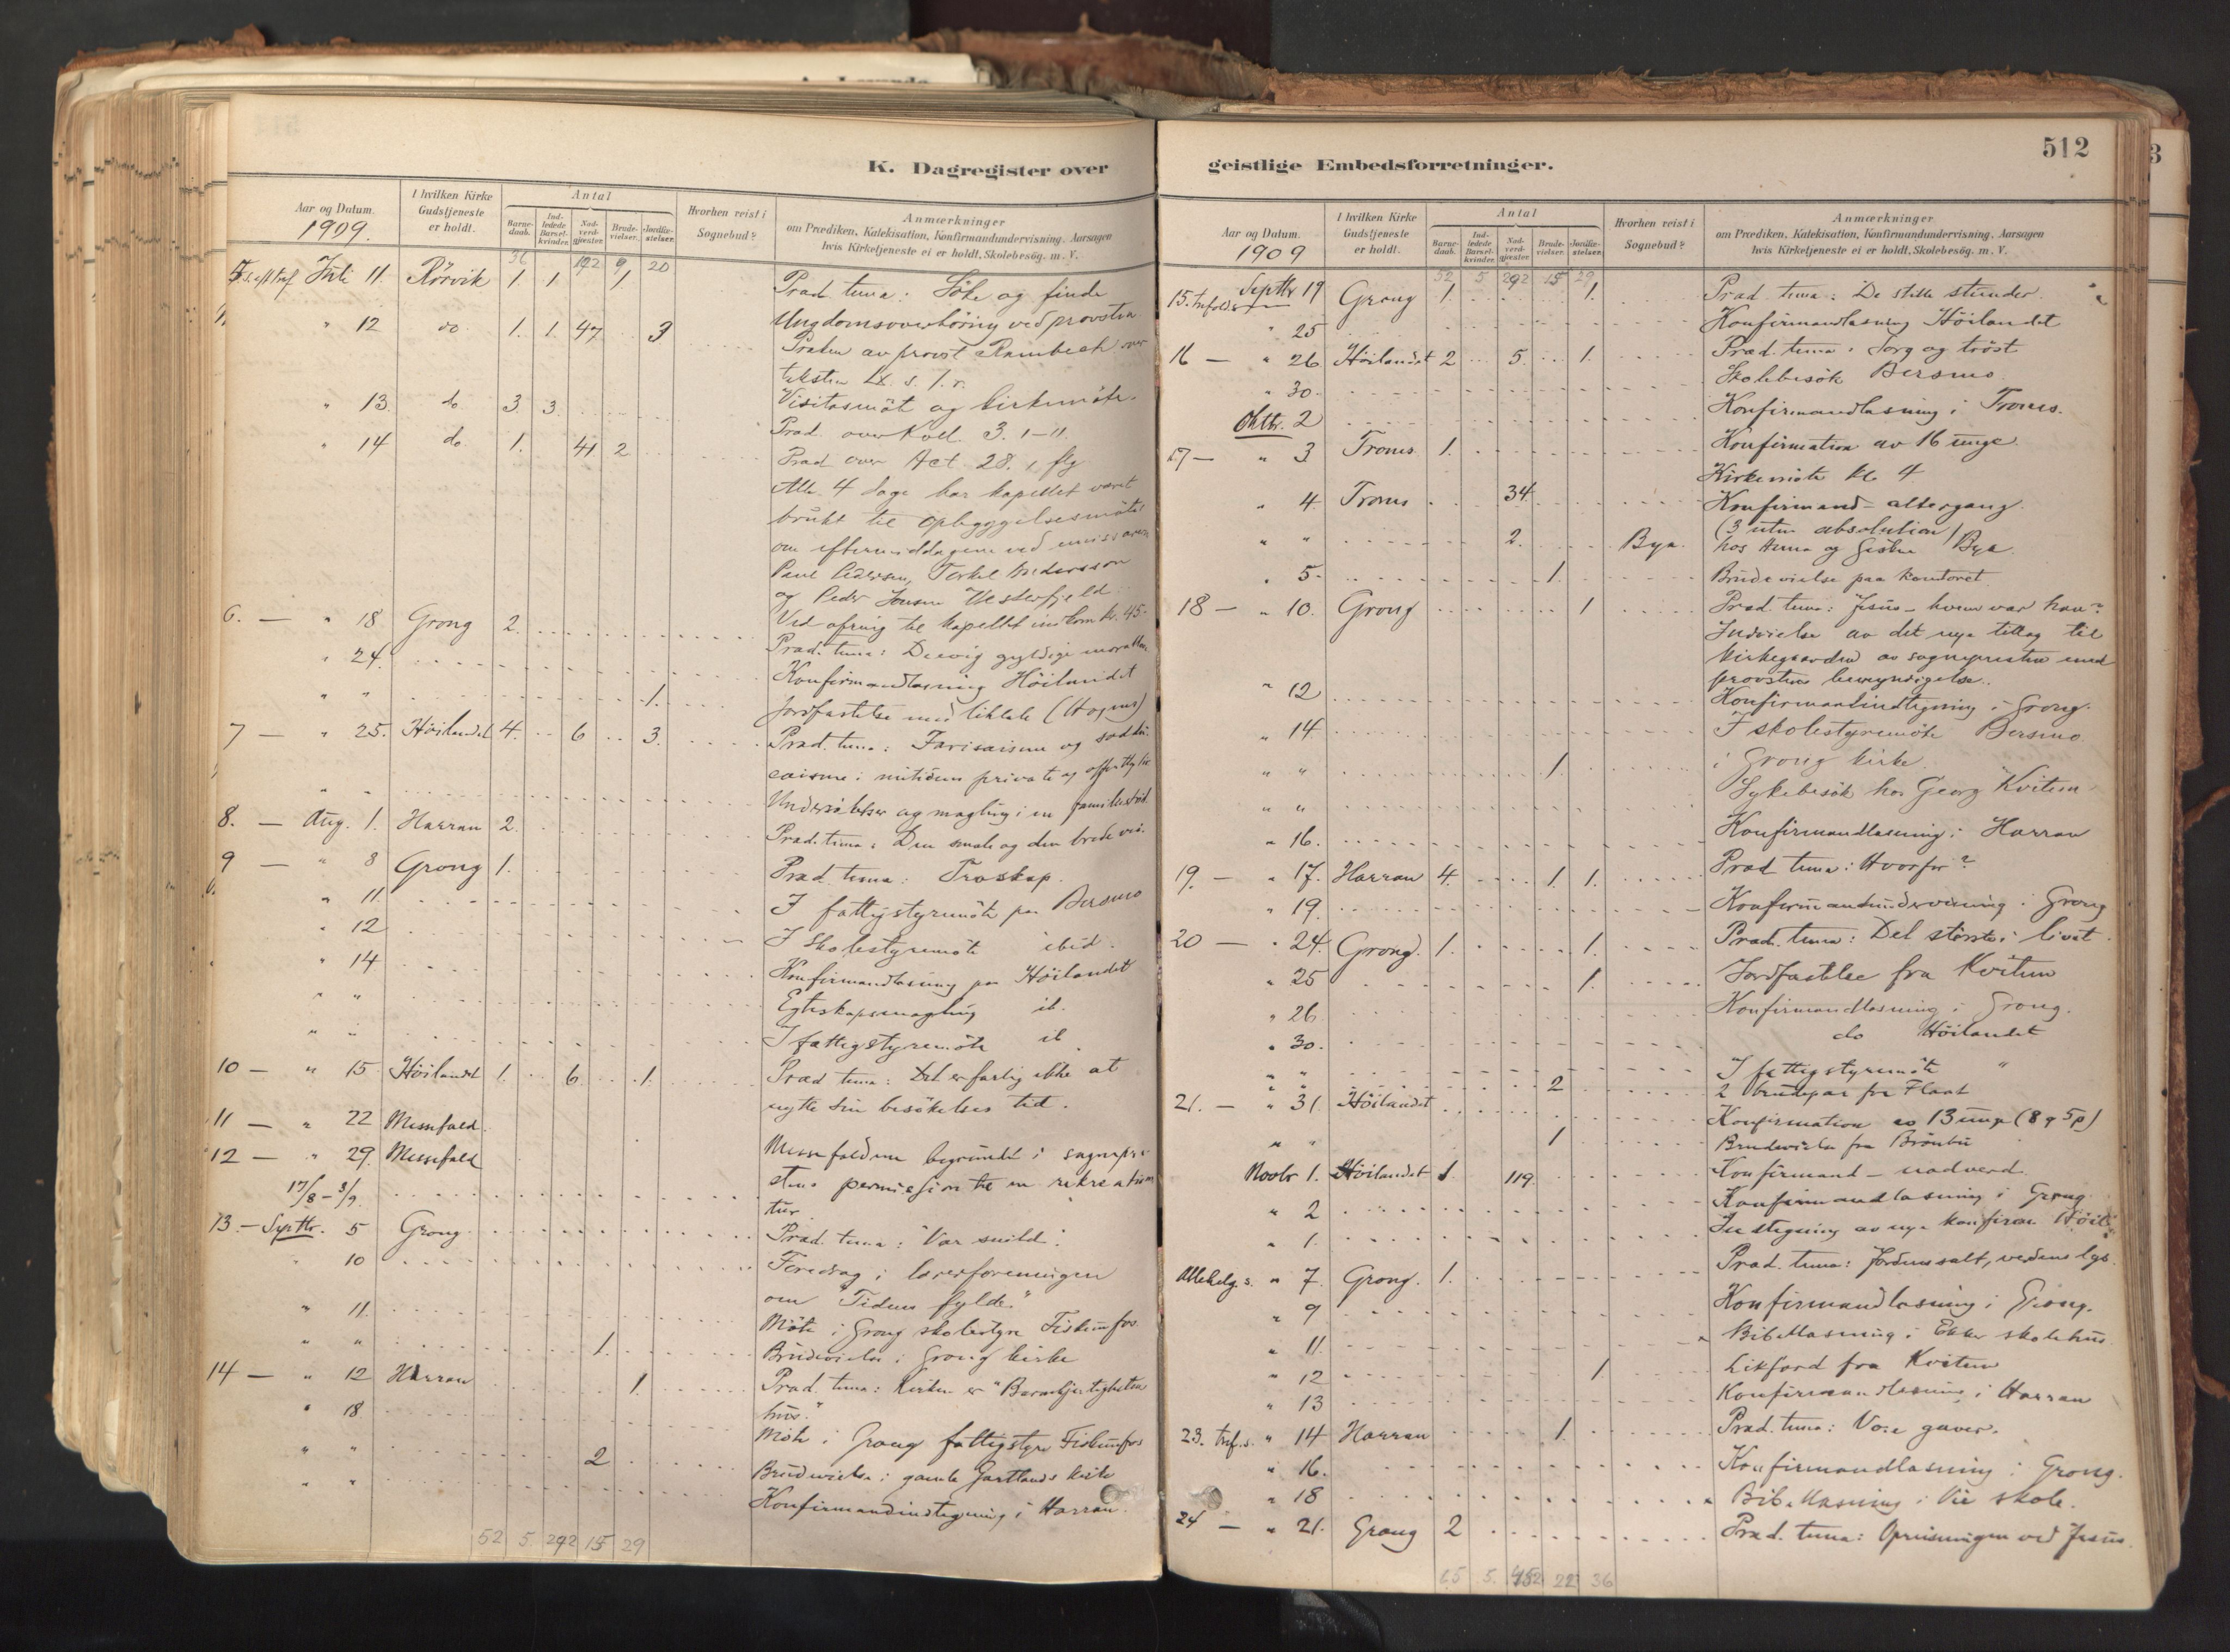 K. Dagregister over
Aar og Datum.
1909.
I hvilken Kirke
Gudstjeneste
er holdt.
Antal
Barne-
daab.
Ind-
ledede
Barsel-
kvinder.
Nad-
verd-
gjester.
Brude-
vielser.
Jordfæ-
stelser.
Hvorhen reist i
Sognebud?
Anmærkninger
om Prædiken, Katekisation, Konfirmandundervisning, Aarsagen
hvis Kirketjeneste ei er holdt, Skolebesøg. m. V.
36 192 9 20
Juli 11. Rörvik 1. 1 1 Præd. tema: Söke og finde
" 12 do 1. 1. 47 3 Ungdomsoverhöring ved provsten.
Præken av provst Rambech over
teksten
" 13. do 3. 3. Visitasmöte og kirkemöte.
Præd. over Koll. 3. 1-11.
" 14 do 1. 41 2 Præd over Act. 28. 1 flg
Alle 4 dage har kapellet været
brukt til opbyggelsesmöter
om eftermiddagene ved
Paul Pedersen, Torkel Andersson
og Peder Jonsen Vesterfjeld.
6. — " 18 Grong 2. Ved ofring til kapellet indkom kr. 45.-
Præd. tema:
" 24. Konfirmandlæsning Höilandet
" " 1. Jordfæstelse med liktale
7 — " 25. Höilandet 4. 6 3. Præd. tema: Farisæisme og saddu-
cæisme i nutidens private og offentlig liv
" " Undersökelser og mægling i en
8. — Aug. 1. Harran 2. Præd. tema: Den smale og den brede vei.
9 — " 8 Grong 1. Præd. tema: Troskap.
" 11. I fattigstyremöte paa Bersmo
" 12 I skolestyremöte ibid.
" 14 Konfirmandlæsning paa Höilandet
" " Egteskapsmægling ib.
" " I fattigstyremöte ib.
10 — " 15 Höilandet 1. 6 1. Præd tema: Det er farlig ikke at
nytte sin besökelses tid.
11 — " 22 Messefald.
12 — " 29. Messefald Messefaldene begrundet i sognepre-
17/8 - 3/9. stens permission til en rekreations
tur
13. — Septbr. 5 Grong Præd. tema: "Vær snild".
" 10 Foredrag i lærerforeningen
om "Tidens fylde."
" 11. Möte i Grong skolestyre Fiskumfos
" " 1. Brudevielse i Grong kirke
14 — " 12 Harran 1. Præd. tema: Kirken er "Barmhjertigheten
hus."
" 18 Möte i Grong fattigstyre Fiskumfos
" " 2 Brudevielse i gamle Gartlands kirke
" " Konfirmandindtegning i Harran.
52 5. 292 15 29
geistlige Embedsforretninger.
512
Aar og Datum.
1909
I hvilken Kirke
Gudstjeneste
er holdt.
Antal
Barne-
daab.
Ind-
ledede
Barsel-
kvinder.
Nad-
verd-
gjester.
Brude-
vielser.
Jordfæ-
stelser.
Hvorhen reist i
Sognebud?
Anmærkninger
om Prædiken, Katekisation, Konfirmandundervisning, Aarsagen
hvis Kirketjeneste ei er holdt, Skolebesøg. m. V.
52 5 292 15 29
15. Septbr 19 Grong 1. 1. Præd. tema: De stille stunder.
" 25 Konfirmandlæsning Höilandet
16 — " 26 Höilandet 2 5. 1. Præd. tema: Sorg og tröst
" 30. Skolebesök Bersmo
Oktbr. 2 Konfirmandlæsning i Trones.
17 — " 3 Trones 1. Konfirmation av 16 unge
Kirkemöte kl. 4
" 4 Trones 34. Konfirmand-altergang.
(3 uten absolution)
" " 2. Bya. hos Anna og Gislme Bya
" 5. 1. Brudevielse paa kontoret
18 — " 10. Grong 1 Præd. tema: Jesus - hvem var han?
Indvielse av det nye tillæg til
kirkegaarden av sognepresten med
provstens bemyndigelse.
" 12 Konfirmandindtegning i Grong.
" 14. I skolestyremöte Bersmo
" " 1. i Grong kirke
" " Sykebesök hos Georg Kvitem
" 16. Konfirmandlæsning i Harran
19. — " 17. Harran 4. 1. 1. Præd tema: Hvorfor?
" 19. Konfirmandundervisning i Grong
20 — " 24. Grong. 1. 1. Præd. tema: Det störste i livet.
" 25 1. Jordfæstelse fra Kvitem
" 26 Konfirmandlæsning i Grong.
" 30. do Höilandet
" " I fattigstyremöte "
" " 2 2 brudepar fra Flaat
21. — " 31 Höilandet Konfirmation av 13 unge (8 g 5 p)
" " 1 Brudevielse fra Brönbu
Novbr 1. Höilandet 1. 119. Konfirmand-nadverd.
" 2 Konfirmandlæsning i Grong
" 1. Indtegning av nye konfirm. Höil.
Allehelg. s. " 7. Grong. 1. Præd. tema: Jordens salt, verdens lys.
" 9 Konfirmandlæsning i Grong.
" 11. Bibellæsning i Ekker skolehus
" 12 1 Likferd fra Kvitem
" 13 Konfirmandlæsning i Harran
23. tref. s. " 14 Harran 1. Præd. tema: Vore gaver.
" 16. Konfirmandlæsning i Grong.
" 18 Bibellæsning i Vie skole.
24 — " 21. Grong 2 Præd. tema: Opreisningen ved Jesus.
65 5. 452 22 36